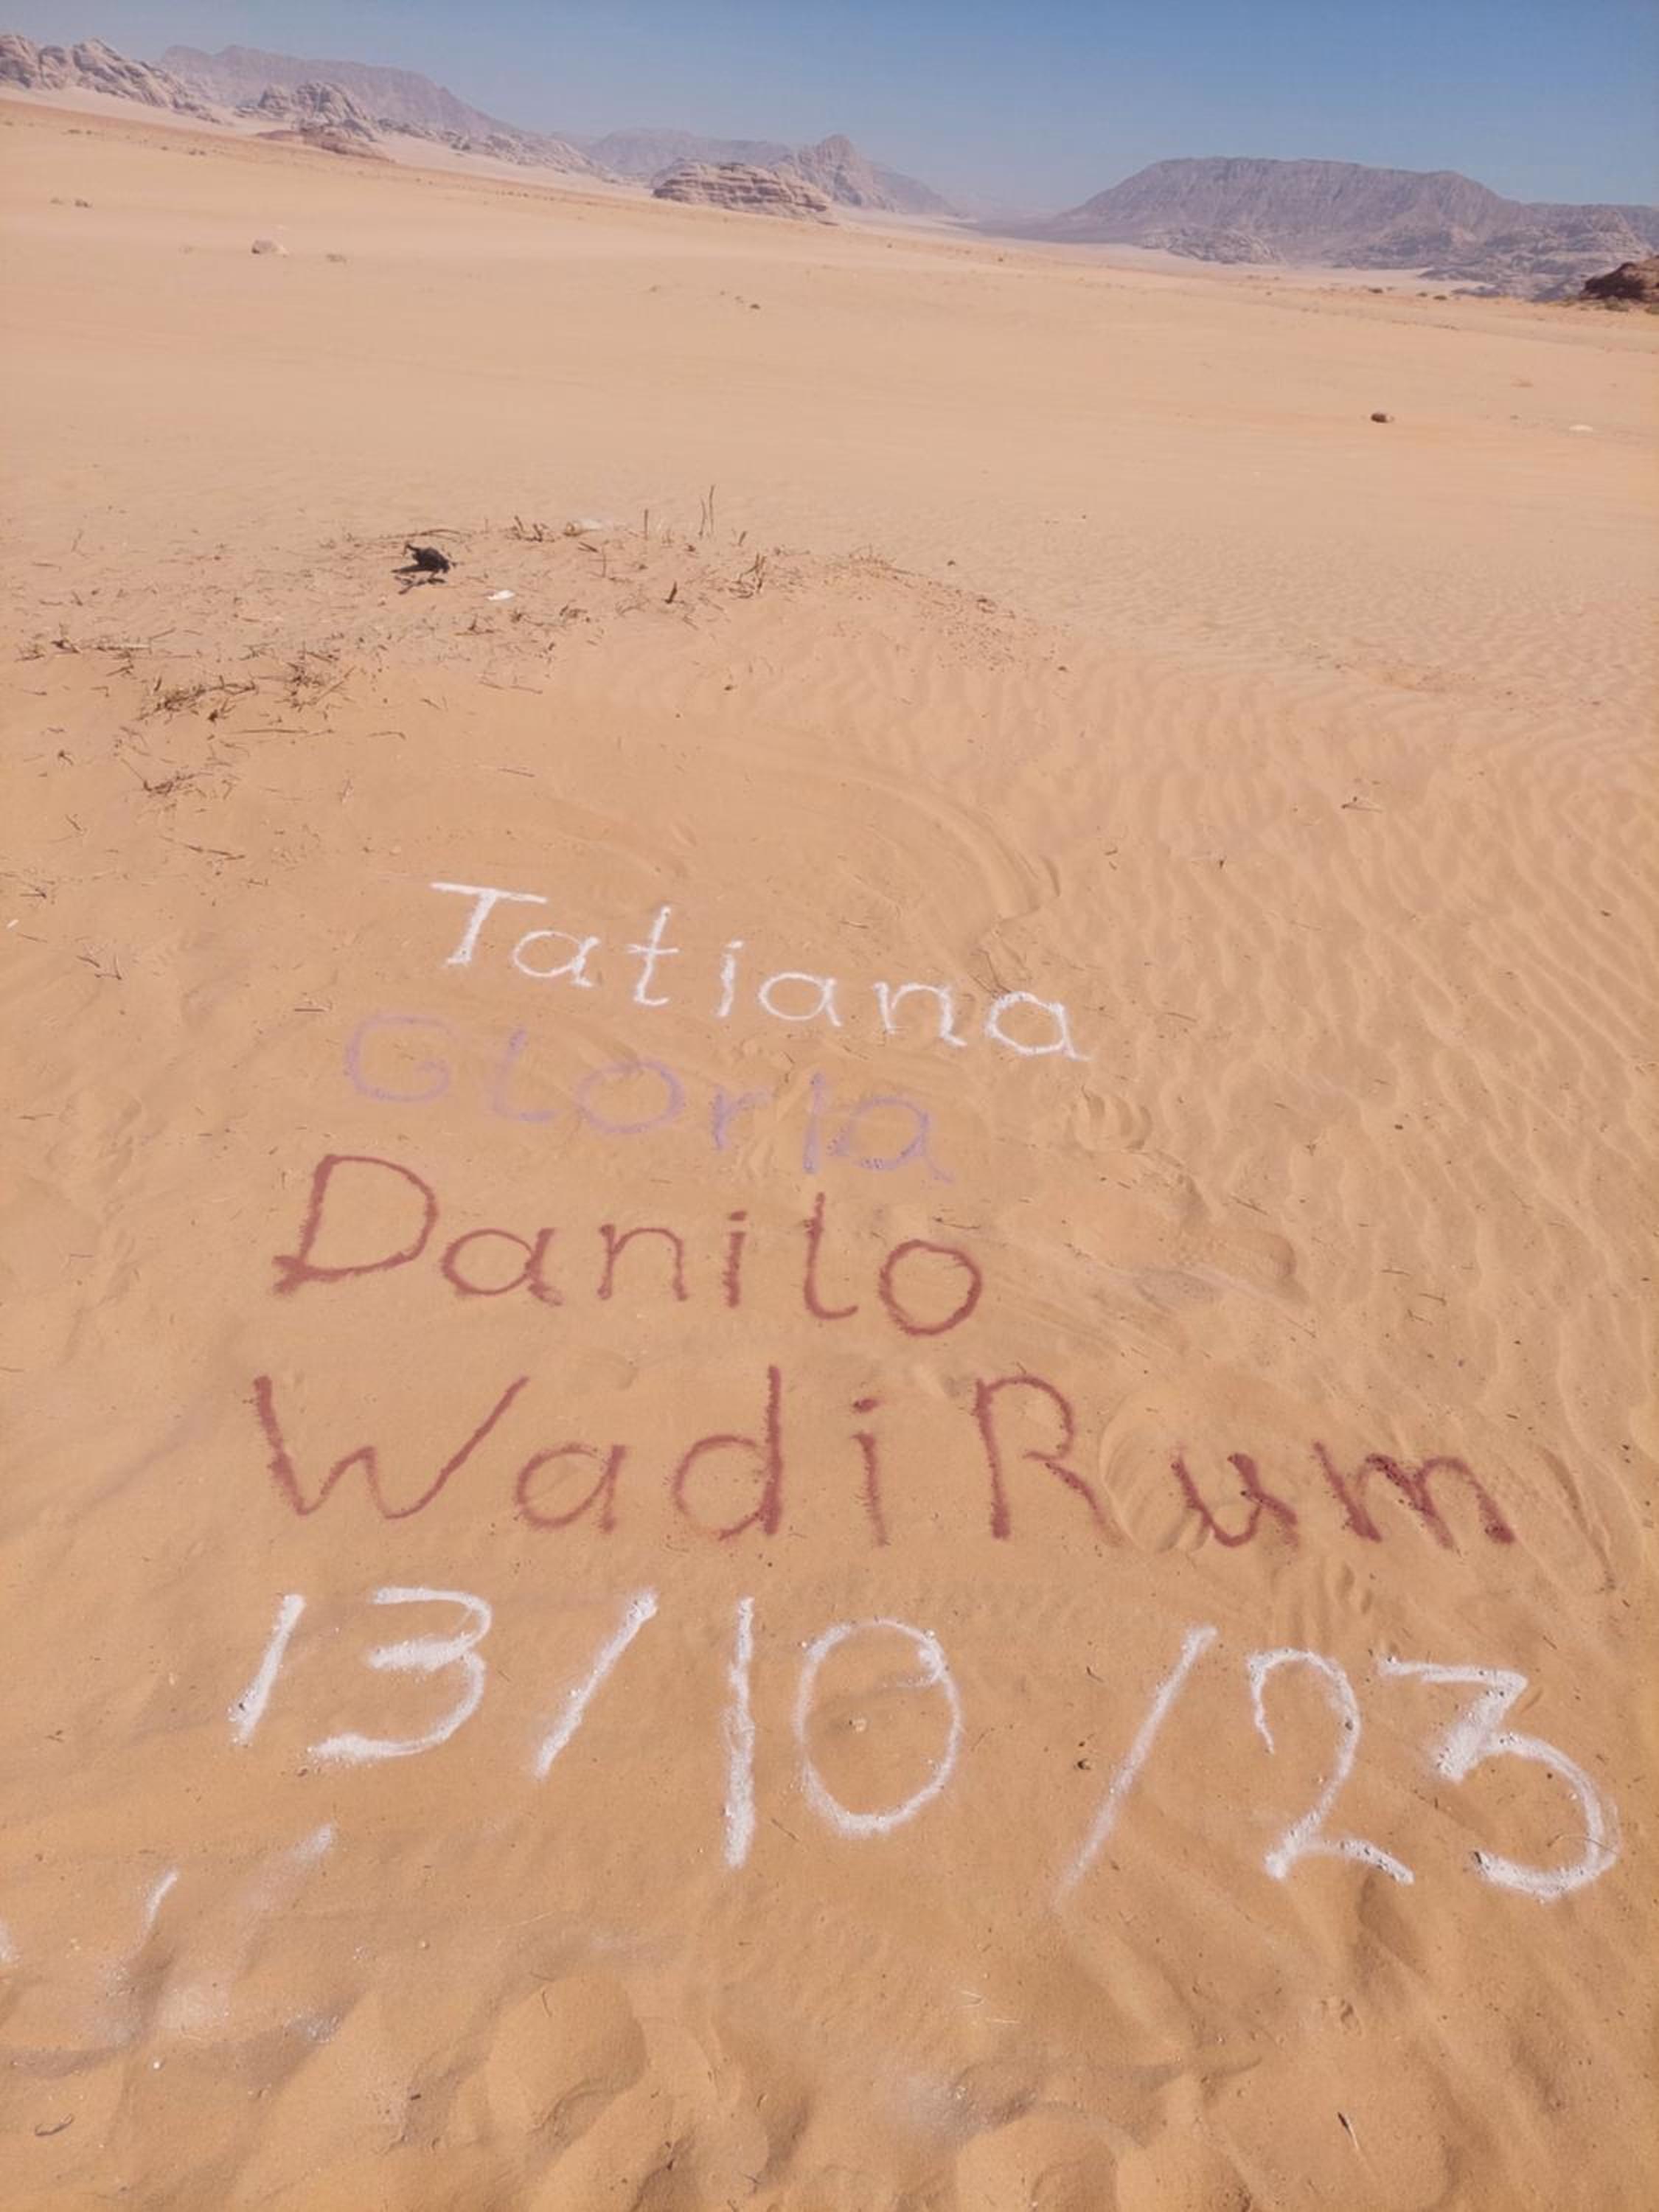 Tatiana
Gloria
Danilo
Wadi Rum
13/10/23